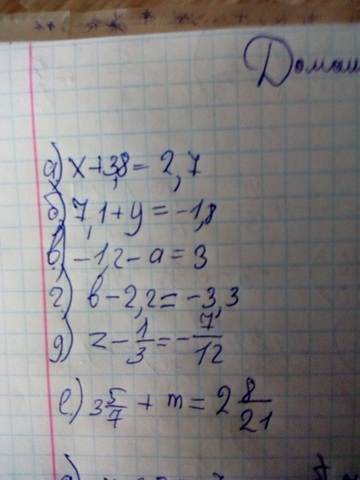 Домаш
а) x+3,8 = 2,7
б) 7,1+y = -1,8
в) -1,2-a = 3
г) b-2,2 = -3,3
д) z - 1/3 = - 7/12
е) 3 5/7 + m = 2 8/21